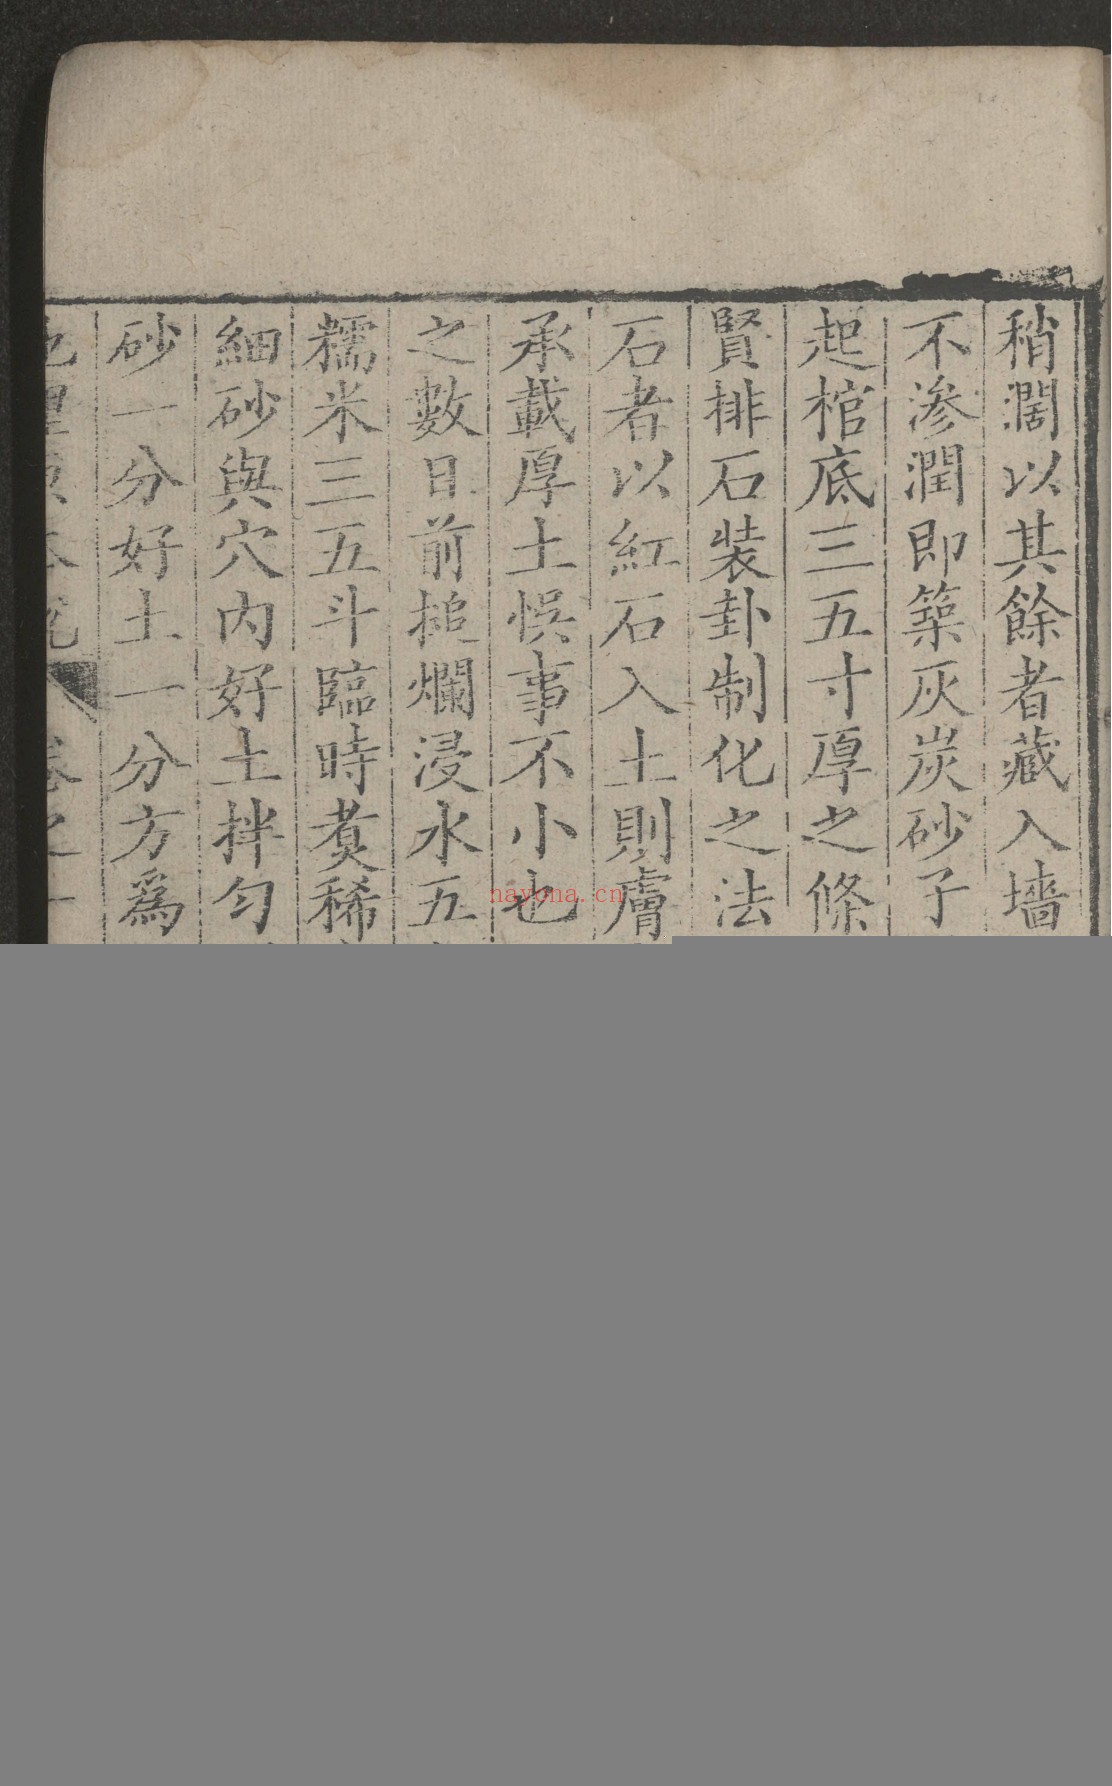 稍濶以其餘者藏入墻
不滲潤即築灰炭砂子
起棺底三五寸厚之條
賢排石裝卦制化之法
石者以紅石入土則膚
承載厚土悞事不小也
之數日前搥爛浸水五
糯米三五斗臨時煑稀
細砂與穴內好土拌勻
砂一分好土一分方爲
nayona.cn